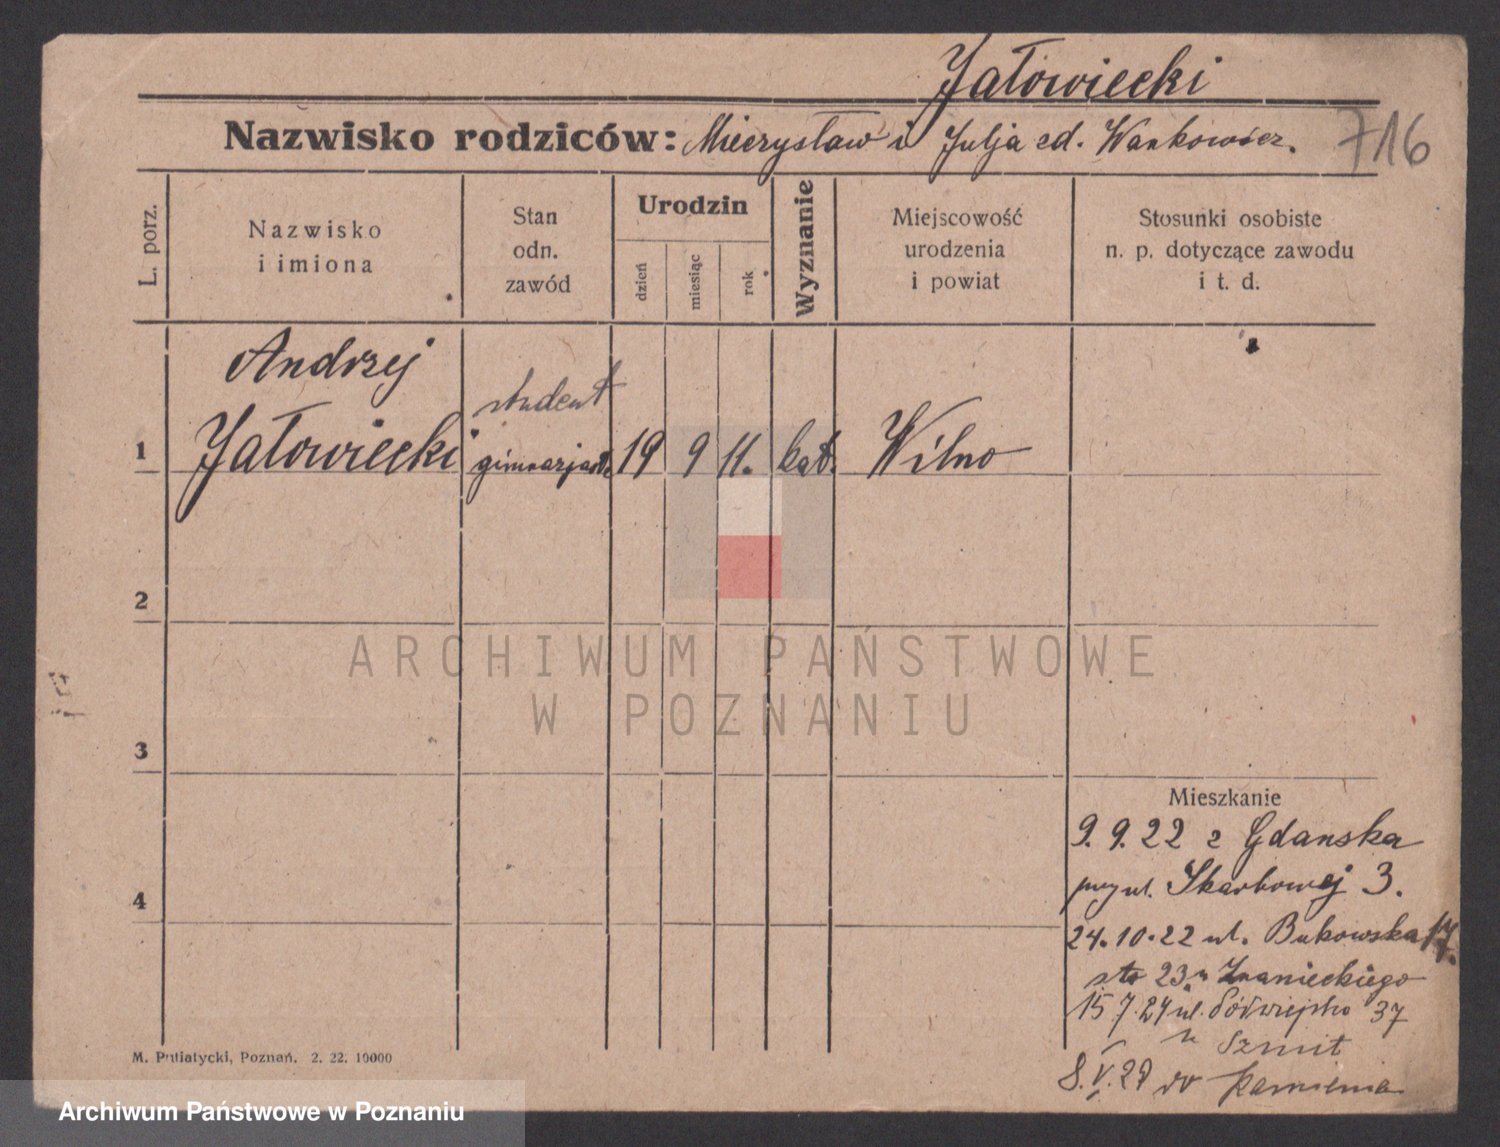 Jałowiecki
Nazwisko rodziców: Mieczysław i Julja zd. Wankowicz.
716
L. porz.
Nazwisko
i imiona
Stan
odn.
zawód
Urodzin
dzień
miesiąc
rok
Wyznanie
Miejscowość
urodzenia
i powiat
Stosunki osobiste
n. p. dotyczące zawodu
i t. d.
Andrzej
student
1 Jałowiecki gimnazjast. 19 9 11. kat. Wilno
2
ARCHIWUM PAŃSTWOWE
W POZNANIU
3
Mieszkanie
9. 9. 22 z Gdanska
przy ul. Skarbowej 3.
4
24. 10. 22 ul. Bukowska 17.
23 u Znanieckiego
15. 7. 24 ul. Półwiejska 37
u Szmit
8. V. 28 do Kamienia
M. Putiatycki, Poznań. 2. 22. 10000
Archiwum Państwowe w Poznaniu